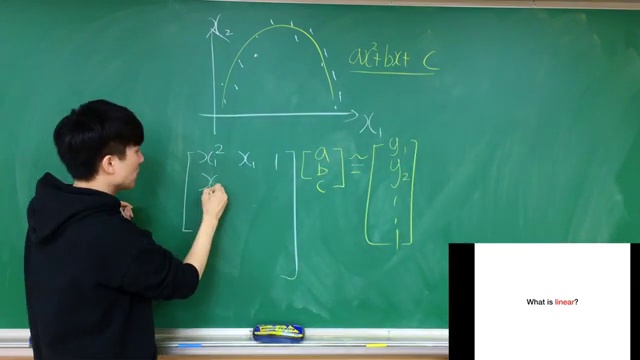 x₂
ax²+bx+ c
x₁
x₁² x₁ 1
x
a
b
c
≅
y₁
y₂
What is linear?